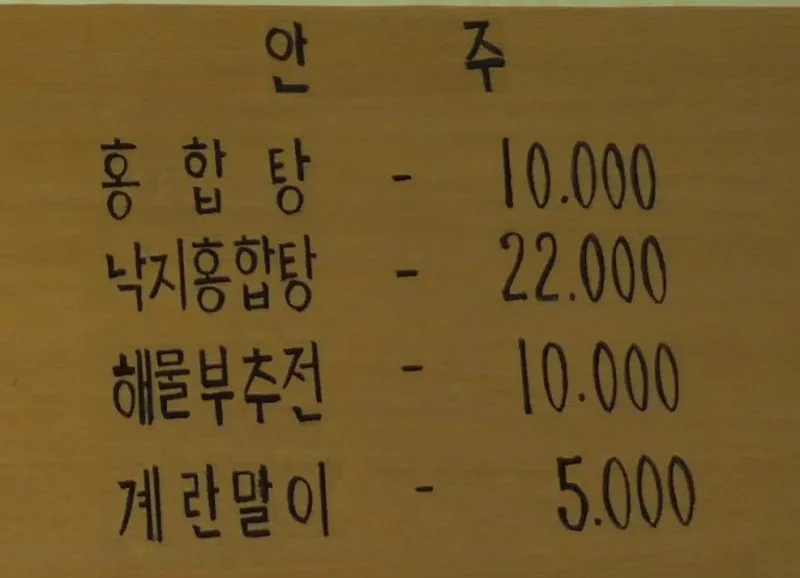 안 주
홍 합 탕 - 10.000
낙지홍합탕 - 22.000
해물부추전 - 10.000
계란말이 - 5.000